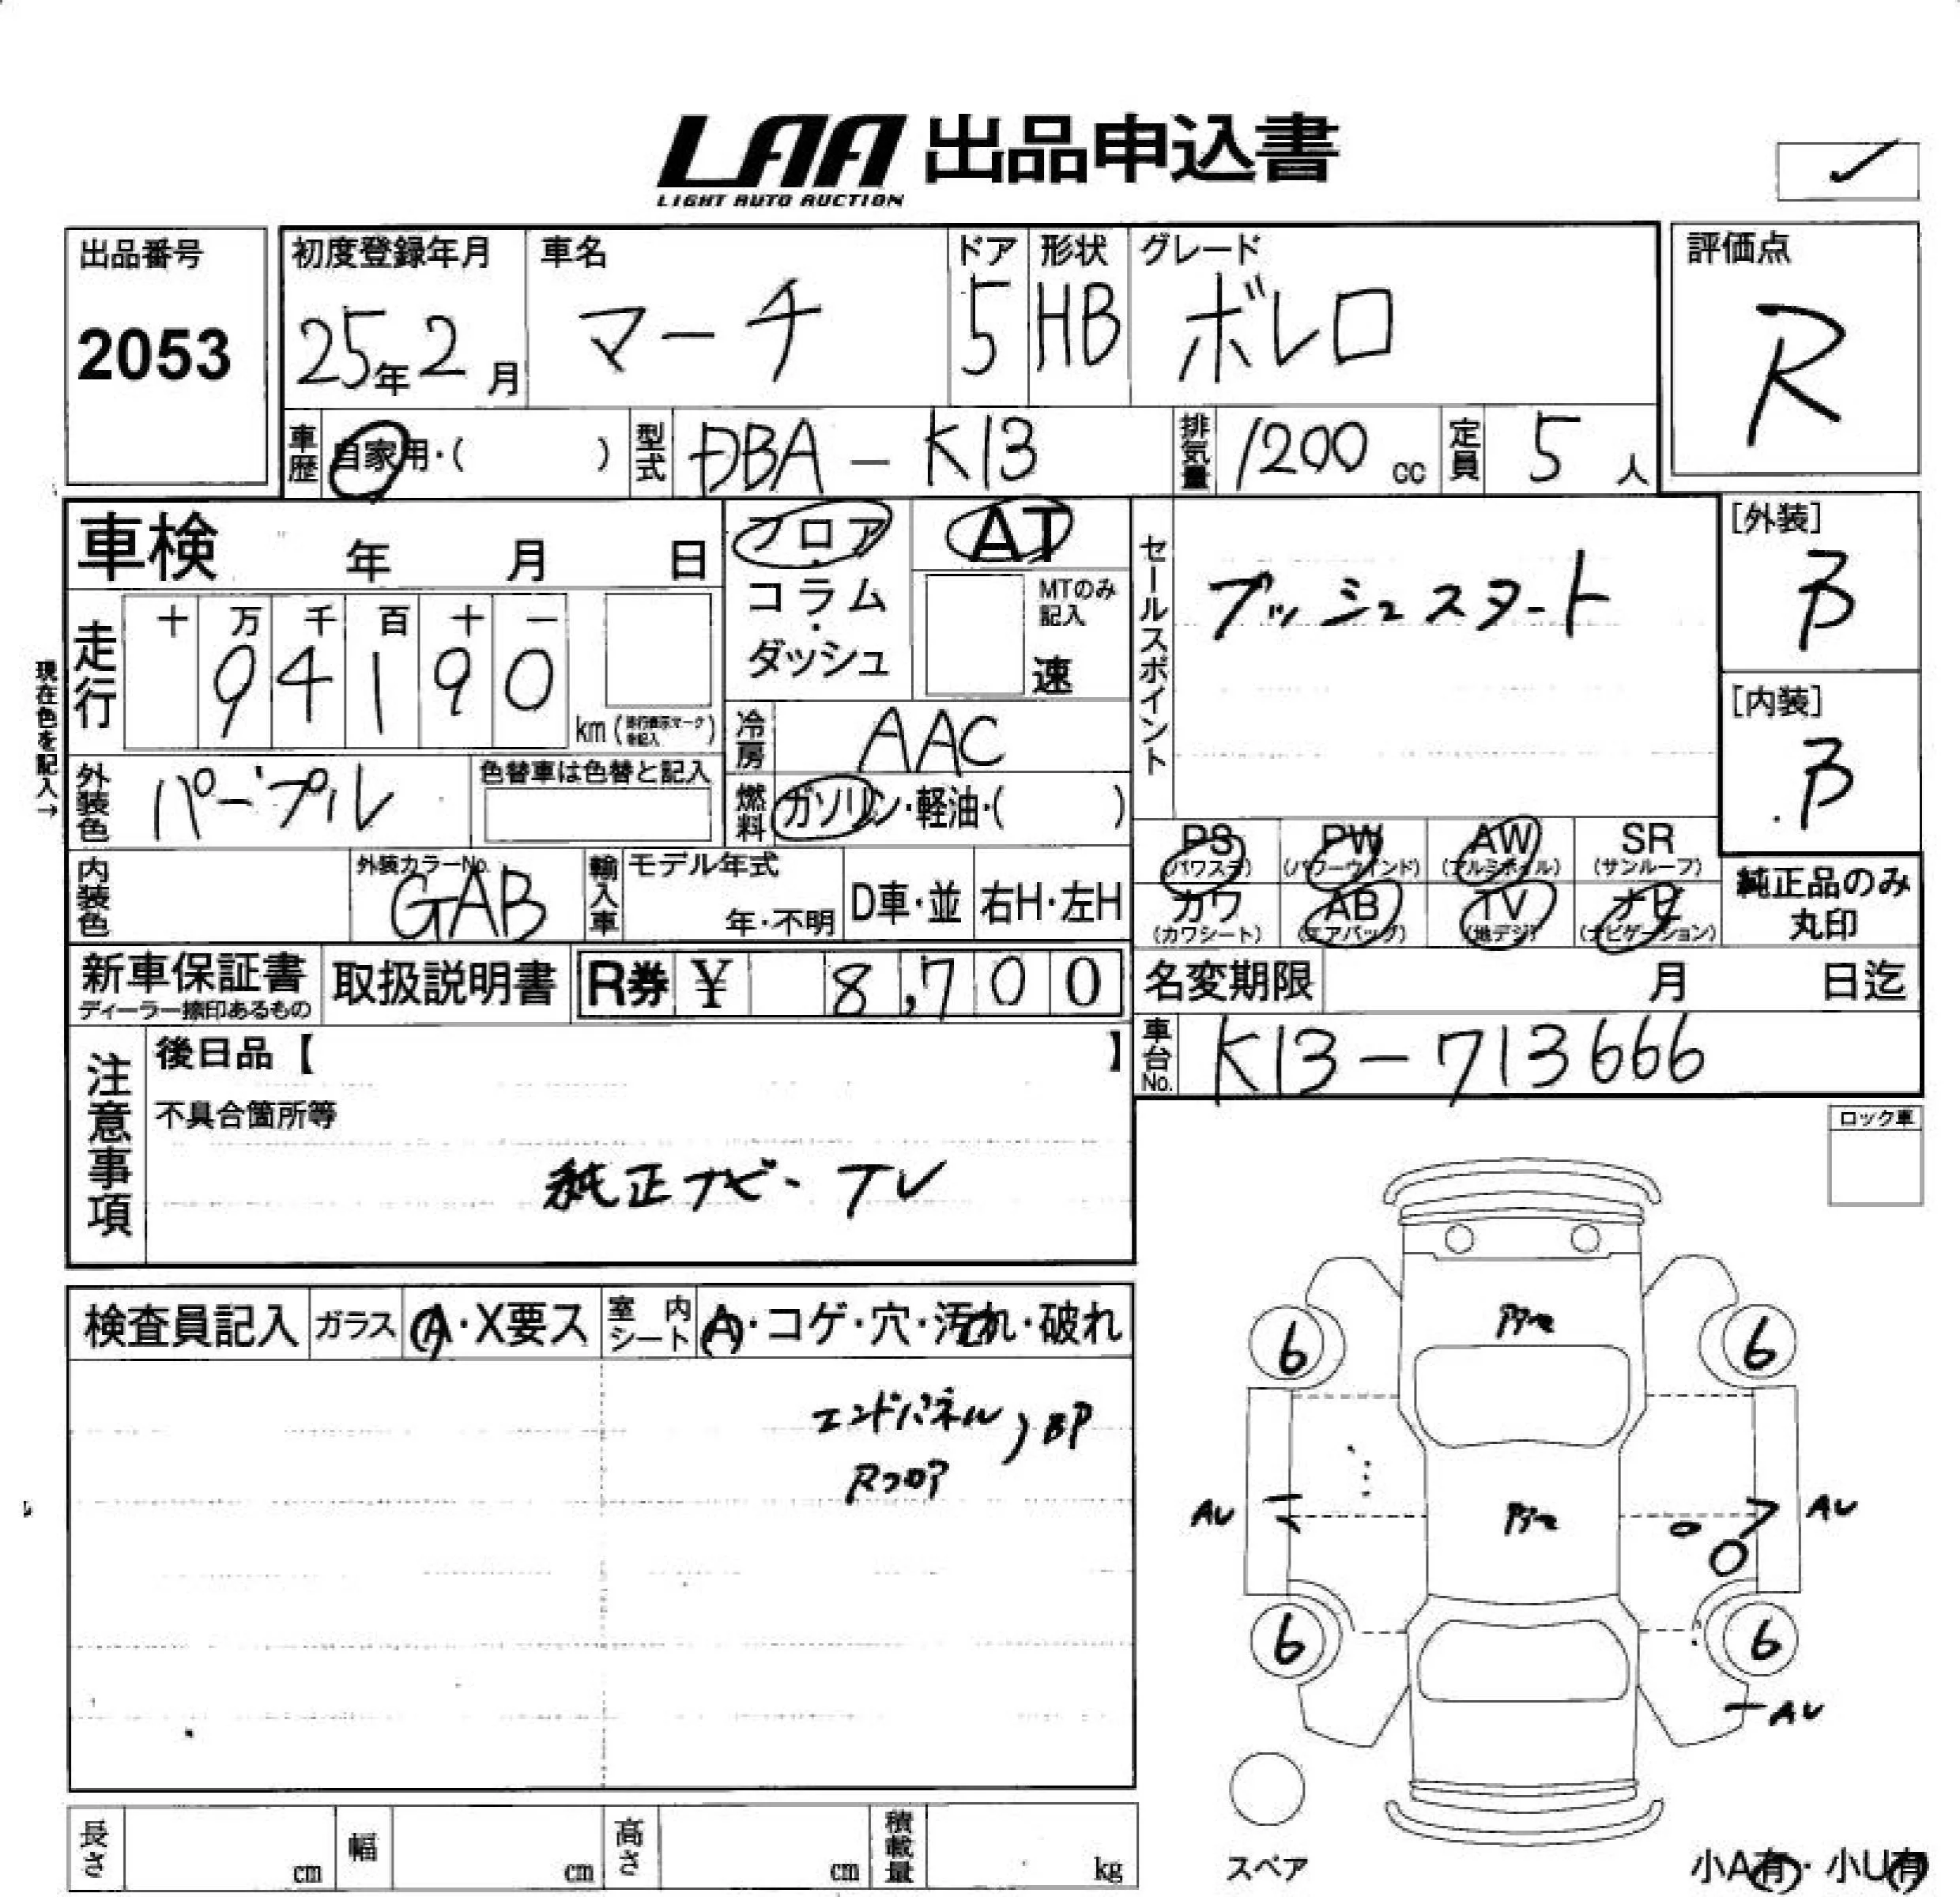 LAA 出品申込書
LIGHT AUTO AUCTION
出品番号
2053
初度登録年月
25年2月
車名
マーチ
ドア
5
形状
HB
グレード
ボレロ
評価点
R
車歴
自家用・( )
型式
DBA - K13
排気量
1200 cc
定員
5 人
車検 年 月 日
フロア
・
コラム
・
ダッシュ
AT
MTのみ
記入
速
セールスポイント
プッシュスタート
[外装]
B
[内装]
B
現在色を記入→
走行
十 万 千 百 十 一
9 4 1 9 0
km ( )
冷房
AAC
外装色
パープル
色替車は色替と記入
燃料
ガソリン・軽油・( )
PS
(パワステ)
PW
(パワーウインド)
AW
(アルミホイル)
SR
(サンルーフ)
カワ
(カワシート)
AB
(エアバッグ)
TV
(地デジ)
ナビ
(ナビゲーション)
純正品のみ
丸印
内装色
外装カラーNo.
GAB
輸入車
モデル年式
年・不明
D車・並
右H・左H
新車保証書
ディーラー捺印あるもの
取扱説明書
R券 ¥ 8,700
名変期限 月 日迄
車台No.
K13-713666
注意事項
後日品【 】
不具合箇所等
純正ナビ・TV
ロック車
検査員記入
ガラス
A・X要ス
室内
シート
A・コゲ・穴・汚れ・破れ
エンドパネル
Rフロア
6 6
AU AU
6 6
AU
スペア
小A有・小U有
長さ cm
幅 cm
高さ cm
積載量 kg